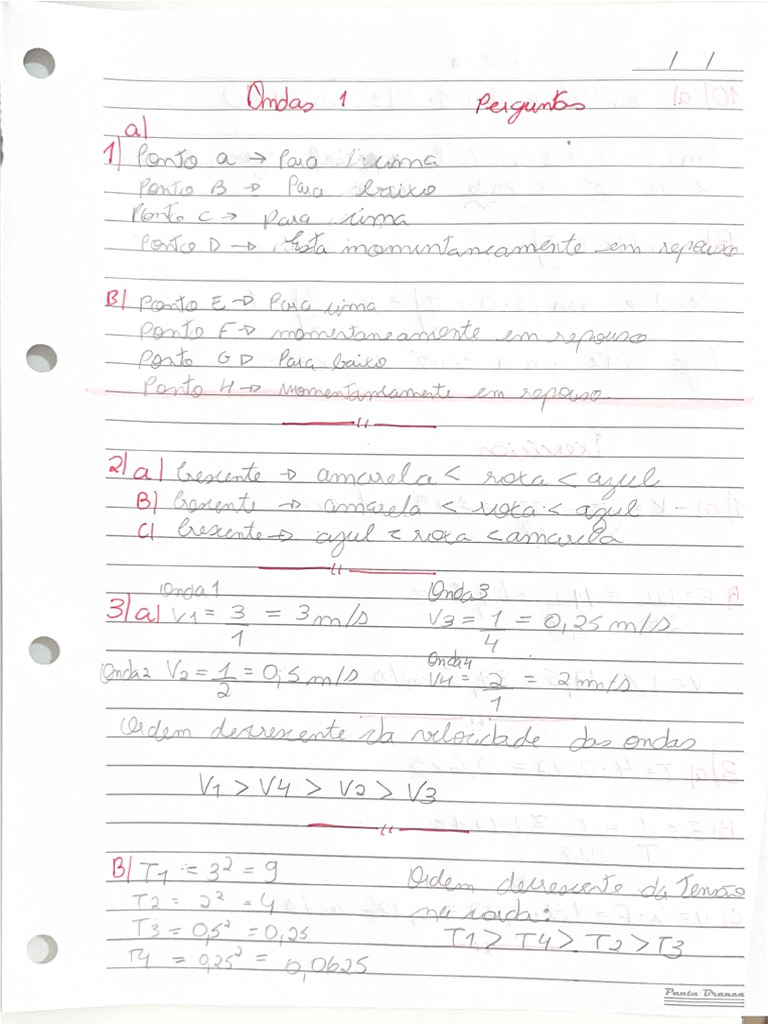 / /
Ondas 1 Perguntas
a)
1) Ponto a → Para cima
Ponto B → Para baixo
Ponto C → para cima
Ponto D → Esta momentaneamente em repouso
B) Ponto E → Para cima
Ponto F → momentaneamente em repouso
Ponto G → Para baixo
Ponto H → Momentaneamente em repouso
2) a) Crescente → amarela < roxa < azul
B) Crescente → amarela < roxa < azul
C) Crescente → azul < roxa < amarela
Onda 1 Onda 3
3) a) V1 = 3/1 = 3 m/s V3 = 1/4 = 0,25 m/s
Onda 2 V2 = 1/2 = 0,5 m/s Onda 4 V4 = 2/1 = 2 m/s
Ordem decrescente da velocidade das ondas
V1 > V4 > V2 > V3
B) T1 = 3² = 9 Ordem decrescente da Tensão
T2 = 2² = 4 na corda:
T3 = 0,5² = 0,25 T1 > T4 > T2 > T3
T4 = 0,25² = 0,0625
Pauta Branca